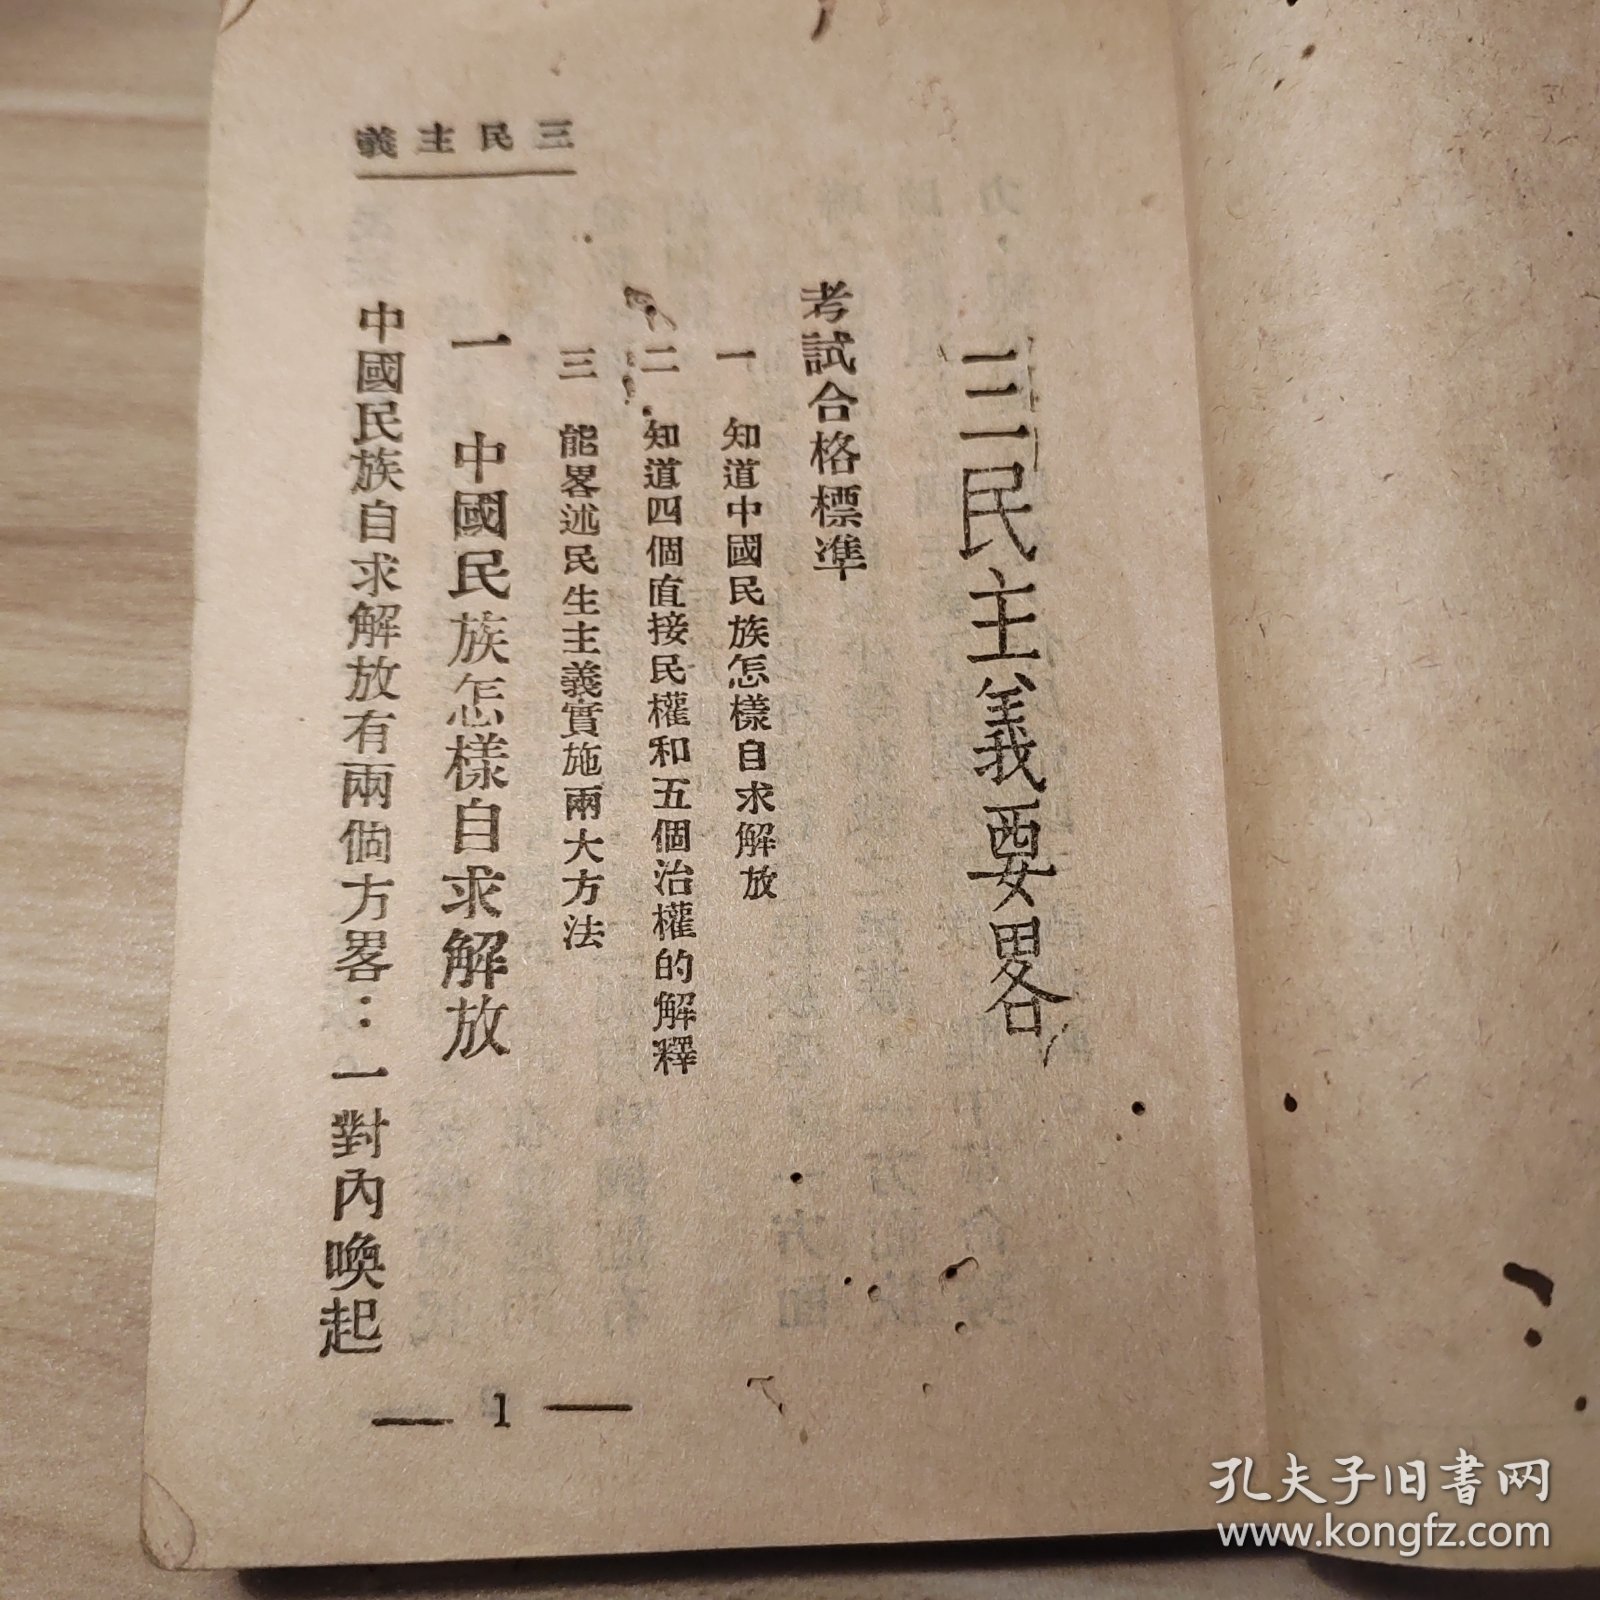 三民主義
三民主義要畧
考試合格標準
一 知道中國民族怎樣自求解放
二 知道四個直接民權和五個治權的解釋
三 能畧述民生主義實施兩大方法
一 中國民族怎樣自求解放
中國民族自求解放有兩個方畧：一對內喚起
— 1 —
孔夫子旧书网
www.kongfz.com